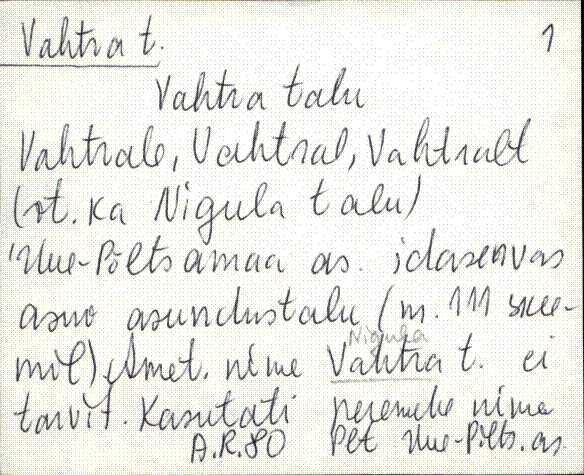 Vahtra t. 1
Vahtra talu
Vahtrale, Vahtral, Vahtralt
(vt. ka Nigula talu)
Uue-Põltsamaa as. idaservas
asuv asundustalu (nr. 111 skee-
Nigula
mil). Amet. nime Vahtra t. ei
tarvit. Kasutati peremehe nime
A.R.80 Plt Uue-Põlts. as.